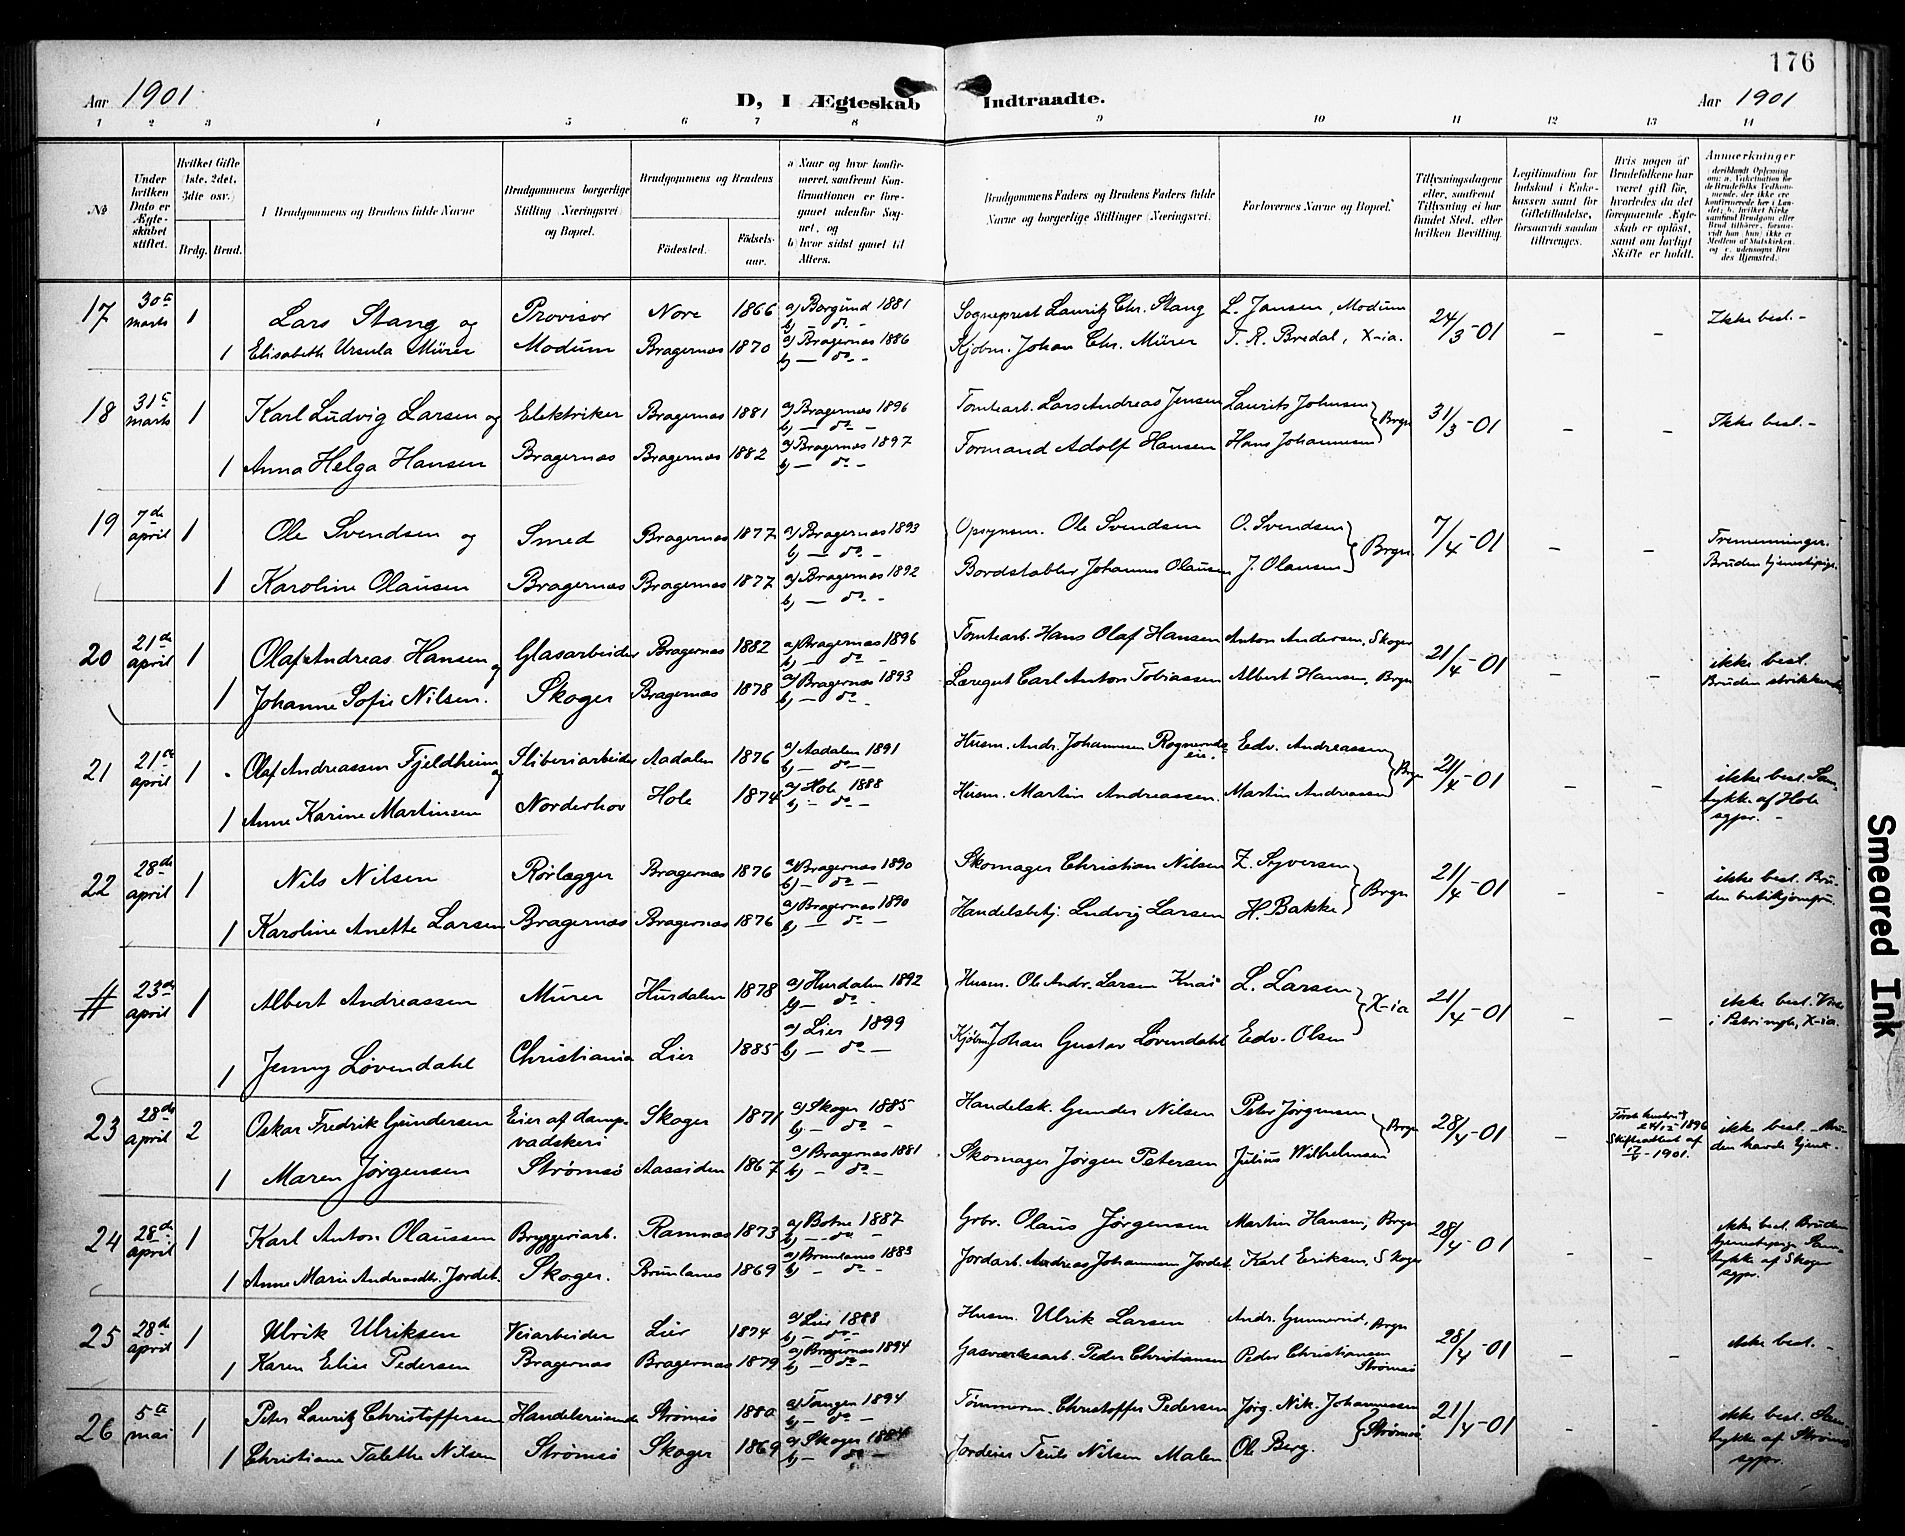 176
Aar 1901. D, I Ægteskab Indtraadte. Aar 1901
1 2 3 4 5 6 7 8 9 10 11 12 13 14
№
Under hvilken Dato er Ægteskabet stiftet.
Hvilket Gifte (1ste, 2det, 3die osv.)
Brdg. Brud.
Brudgommens og Brudens fulde Navne
Brudgommens borgerlige Stilling (Næringsvei) og Bopæl.
Brudgommens og Brudens
Fødested.
Fødselsaar.
a) Naar og hvor konfirmeret, saafremt Konfirmationen er foregaaet udenfor Sognet, og
b) hvor sidst gaaet til Alters.
Brudgommens Faders og Brudens Faders fulde Navne og borgerlige Stillinger (Næringsvei).
Forlovernes Navne og Bopæl.
Tillysningsdagene eller, saafremt Tillysning ei har fundet Sted, efter hvilken Bevilling.
Legitimation for Indskud i Enkekassen samt for Giftetilladelse, forsaavidt saadan tiltrænges.
Hvis nogen af Brudefolkene har været gift før, hvorledes da det foregaaende Ægteskab er opløst, samt om lovligt Skifte er holdt.
Anmerkninger
17 30te marts 1 Lars Stang og Provisor Nore 1866 a) Borgund 1881 b) — do. — Sogneprest Lauritz Chr. Stang L. Jansen, Modum 24/3-01 — — Ikke besl. -
1 Elisabeth Ursula Mürer Modum Bragernæs 1870 a) Bragernæs 1886 b) — do. — Kjøbm. Johan Chr. Mürer T. R. Bredal, X-ia.
18 31te marts 1 Karl Ludvig Larsen og Elektriker Bragernæs 1881 a) Bragernæs 1896 b) — do. — Tomtearb. Lars Andreas Jensen Laurits Johnsen Brgn 31/3-01 — — Ikke besl. -
1 Anna Helga Hansen Bragernæs Bragernæs 1882 a) Bragernæs 1897 b) — do. — Formand Adolf Hansen Hans Johannesen
19 7de april 1 Ole Svendsen og Smed Bragernæs 1877 a) Bragernæs 1893 b) — do. — Opsynsm. Ole Svendsen O. Svendsen Brgn 7/4-01 — — Tremenninger.
1 Karoline Olausen Bragernæs Bragernæs 1877 a) Bragernæs 1892 b) — do. - Bordstabler Johannes Olausen J. Olausen Bruden tjenestepige
20 21de april 1 Olaf Andreas Hansen og Glasarbeider Bragernæs 1882 a) Bragernæs 1896 b) — do. — Tomtearb. Hans Olaf Hansen Anton Andersen, Skoger 21/4-01 — — ikke besl.
1 Johanne Sofie Nilsen. Skoger Bragernæs 1878 a) Bragernæs 1893 b) — do. Carl Anton Tobiassen Albert Hansen, Brgn Bruden
21 21de april 1 Olaf Andreassen Fjeldheim og Sliberiarbeider Aadalen 1876 a) Aadalen 1891 b) — do. — Husm. Andr. Johannesen Edv. Andreassen Brgn 21/4-01 — — ikke besl. Sam-
1 Anne Karine Martinsen Norderhov Hole 1874 a) Hole 1888 b) — do. - Husm. Martin Andreassen. Martin Andreassen tykke af Hole sgpr. -
22 28de april 1 Nils Nilsen Rørlægger Bragernæs 1876 a) Bragernæs 1890 b) — do. — Skomager Christian Nilsen Z. Syversen Brgn 21/4-01 — — ikke besl. Bru-
1 Karoline Anette Larsen Bragernæs Bragernæs 1876 a) Bragernæs 1890 b) — do. — Handelsbetj. Ludvig Larsen H. Bakke den
# 23de april 1 Albert Andreassen Murer Hurdalen 1878 a) Hurdalen 1892 b) — do. Husm. Ole Andr. Larsen L. Larsen X-ia 21/4-01 — — ikke besl.
1 Jenny Løvendahl Christiania Lier 1885 a) Lier 1899 b) — do. — Kjøbm. Johan Gustav Løvendahl Edv. Olsen X-ia.
23 28de april 2 Oskar Fredrik Gundersen Eier af damp- Skoger 1871 a) Skoger 1885 b) — do. — Handelsk. Gunder Nilsen Peter Jørgensen Brgn 28/4-01 — 1896 Skifteattest af 1901. ikke besl. Bru-
vadskeri den havde
1 Maren Jørgensen Strømsø Aassiden 1867 a) Bragernæs 1881 b) — do. — Skomager Jørgen Petersen Julius Wilhelmsen
24 28de april 1 Karl Anton Olaussen Bryggeriarb. Ramnæs 1873 a) Botne 1887 b) — do. Grbr. Olaus Jørgensen Martin Hansen, Brgn 28/4-01 — — ikke besl. Bruden tjenestepige. Sam-
1 Anne Marie Andreasdtr. Jordet. Skoger. Brunlanes 1869 a) Brunlanes 1883 b) — do. — Jordarb. Andreas Johannesen Jordet. Karl Eriksen, Skoger tykke af Skoger sgpr.
25 28de april 1 Ulrik Ulriksen Veiarbeider Lier 1874 a) Lier 1888 b) — do. — Husm. Ulrik Larsen Andr. Gunnerud, Brgn 28/4-01 — — ikke besl. -
1 Karen Elise Pedersen Bragernæs Bragernæs 1879 a) Bragernæs 1894 b) — do. — Gasværksarb. Peder Christiansen Peder Christiansen Strømsø
26 5te mai 1 Peter Lauritz Christoffersen Handelsreisende Strømsø 1880 a) Tangen 1894 b) — do. — Tømmerm. Christoffer Pedersen Jørg. Nik. Johannessen Strømsø 21/4-01 — — ikke besl. Sam-
1 Christiane Talette Nilsen Strømsø Skoger 1869 a) Skoger 1884 b) — do. — Jordeier Truls Nilsen Malen Ole Berg. tykke af Strømsø sgpr.
Smeared Ink